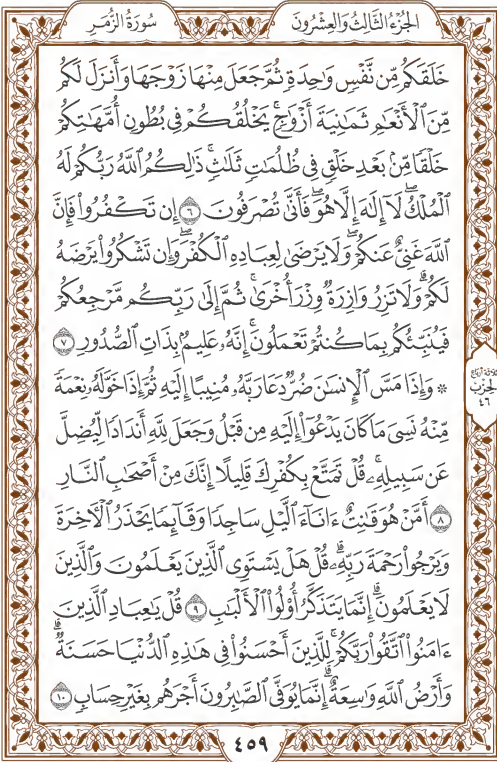 الجُزْءُ الثَّالِثُ وَالعِشْرُونَ سُورَةُ الزُّمَرِ
خَلَقَكُم مِّن نَّفْسٍ وَٰحِدَةٍ ثُمَّ جَعَلَ مِنْهَا زَوْجَهَا وَأَنزَلَ لَكُم
مِّنَ ٱلْأَنْعَٰمِ ثَمَٰنِيَةَ أَزْوَٰجٍ ۚ يَخْلُقُكُمْ فِى بُطُونِ أُمَّهَٰتِكُمْ
خَلْقًا مِّنۢ بَعْدِ خَلْقٍ فِى ظُلُمَٰتٍ ثَلَٰثٍ ۚ ذَٰلِكُمُ ٱللَّهُ رَبُّكُمْ لَهُ
ٱلْمُلْكُ ۖ لَآ إِلَٰهَ إِلَّا هُوَ ۖ فَأَنَّىٰ تُصْرَفُونَ ٦ إِن تَكْفُرُوا۟ فَإِنَّ
ٱللَّهَ غَنِىٌّ عَنكُمْ ۖ وَلَا يَرْضَىٰ لِعِبَادِهِ ٱلْكُفْرَ ۖ وَإِن تَشْكُرُوا۟ يَرْضَهُ
لَكُمْ ۗ وَلَا تَزِرُ وَازِرَةٌ وِزْرَ أُخْرَىٰ ۗ ثُمَّ إِلَىٰ رَبِّكُم مَّرْجِعُكُمْ
فَيُنَبِّئُكُم بِمَا كُنتُمْ تَعْمَلُونَ ۚ إِنَّهُۥ عَلِيمٌۢ بِذَاتِ ٱلصُّدُورِ ٧
۞ وَإِذَا مَسَّ ٱلْإِنسَٰنَ ضُرٌّ دَعَا رَبَّهُۥ مُنِيبًا إِلَيْهِ ثُمَّ إِذَا خَوَّلَهُۥ نِعْمَةً
مِّنْهُ نَسِىَ مَا كَانَ يَدْعُوٓا۟ إِلَيْهِ مِن قَبْلُ وَجَعَلَ لِلَّهِ أَندَادًا لِّيُضِلَّ
عَن سَبِيلِهِۦ ۚ قُلْ تَمَتَّعْ بِكُفْرِكَ قَلِيلًا ۖ إِنَّكَ مِنْ أَصْحَٰبِ ٱلنَّارِ
٨ أَمَّنْ هُوَ قَٰنِتٌ ءَانَآءَ ٱلَّيْلِ سَاجِدًا وَقَآئِمًا يَحْذَرُ ٱلْءَاخِرَةَ
وَيَرْجُوا۟ رَحْمَةَ رَبِّهِۦ ۗ قُلْ هَلْ يَسْتَوِى ٱلَّذِينَ يَعْلَمُونَ وَٱلَّذِينَ
لَا يَعْلَمُونَ ۗ إِنَّمَا يَتَذَكَّرُ أُو۟لُوا۟ ٱلْأَلْبَٰبِ ٩ قُلْ يَٰعِبَادِ ٱلَّذِينَ
ءَامَنُوا۟ ٱتَّقُوا۟ رَبَّكُمْ ۚ لِلَّذِينَ أَحْسَنُوا۟ فِى هَٰذِهِ ٱلدُّنْيَا حَسَنَةٌ ۗ
وَأَرْضُ ٱللَّهِ وَٰسِعَةٌ ۗ إِنَّمَا يُوَفَّى ٱلصَّٰبِرُونَ أَجْرَهُم بِغَيْرِ حِسَابٍ ١٠
الحِزْب
٤٦
٤٥٩